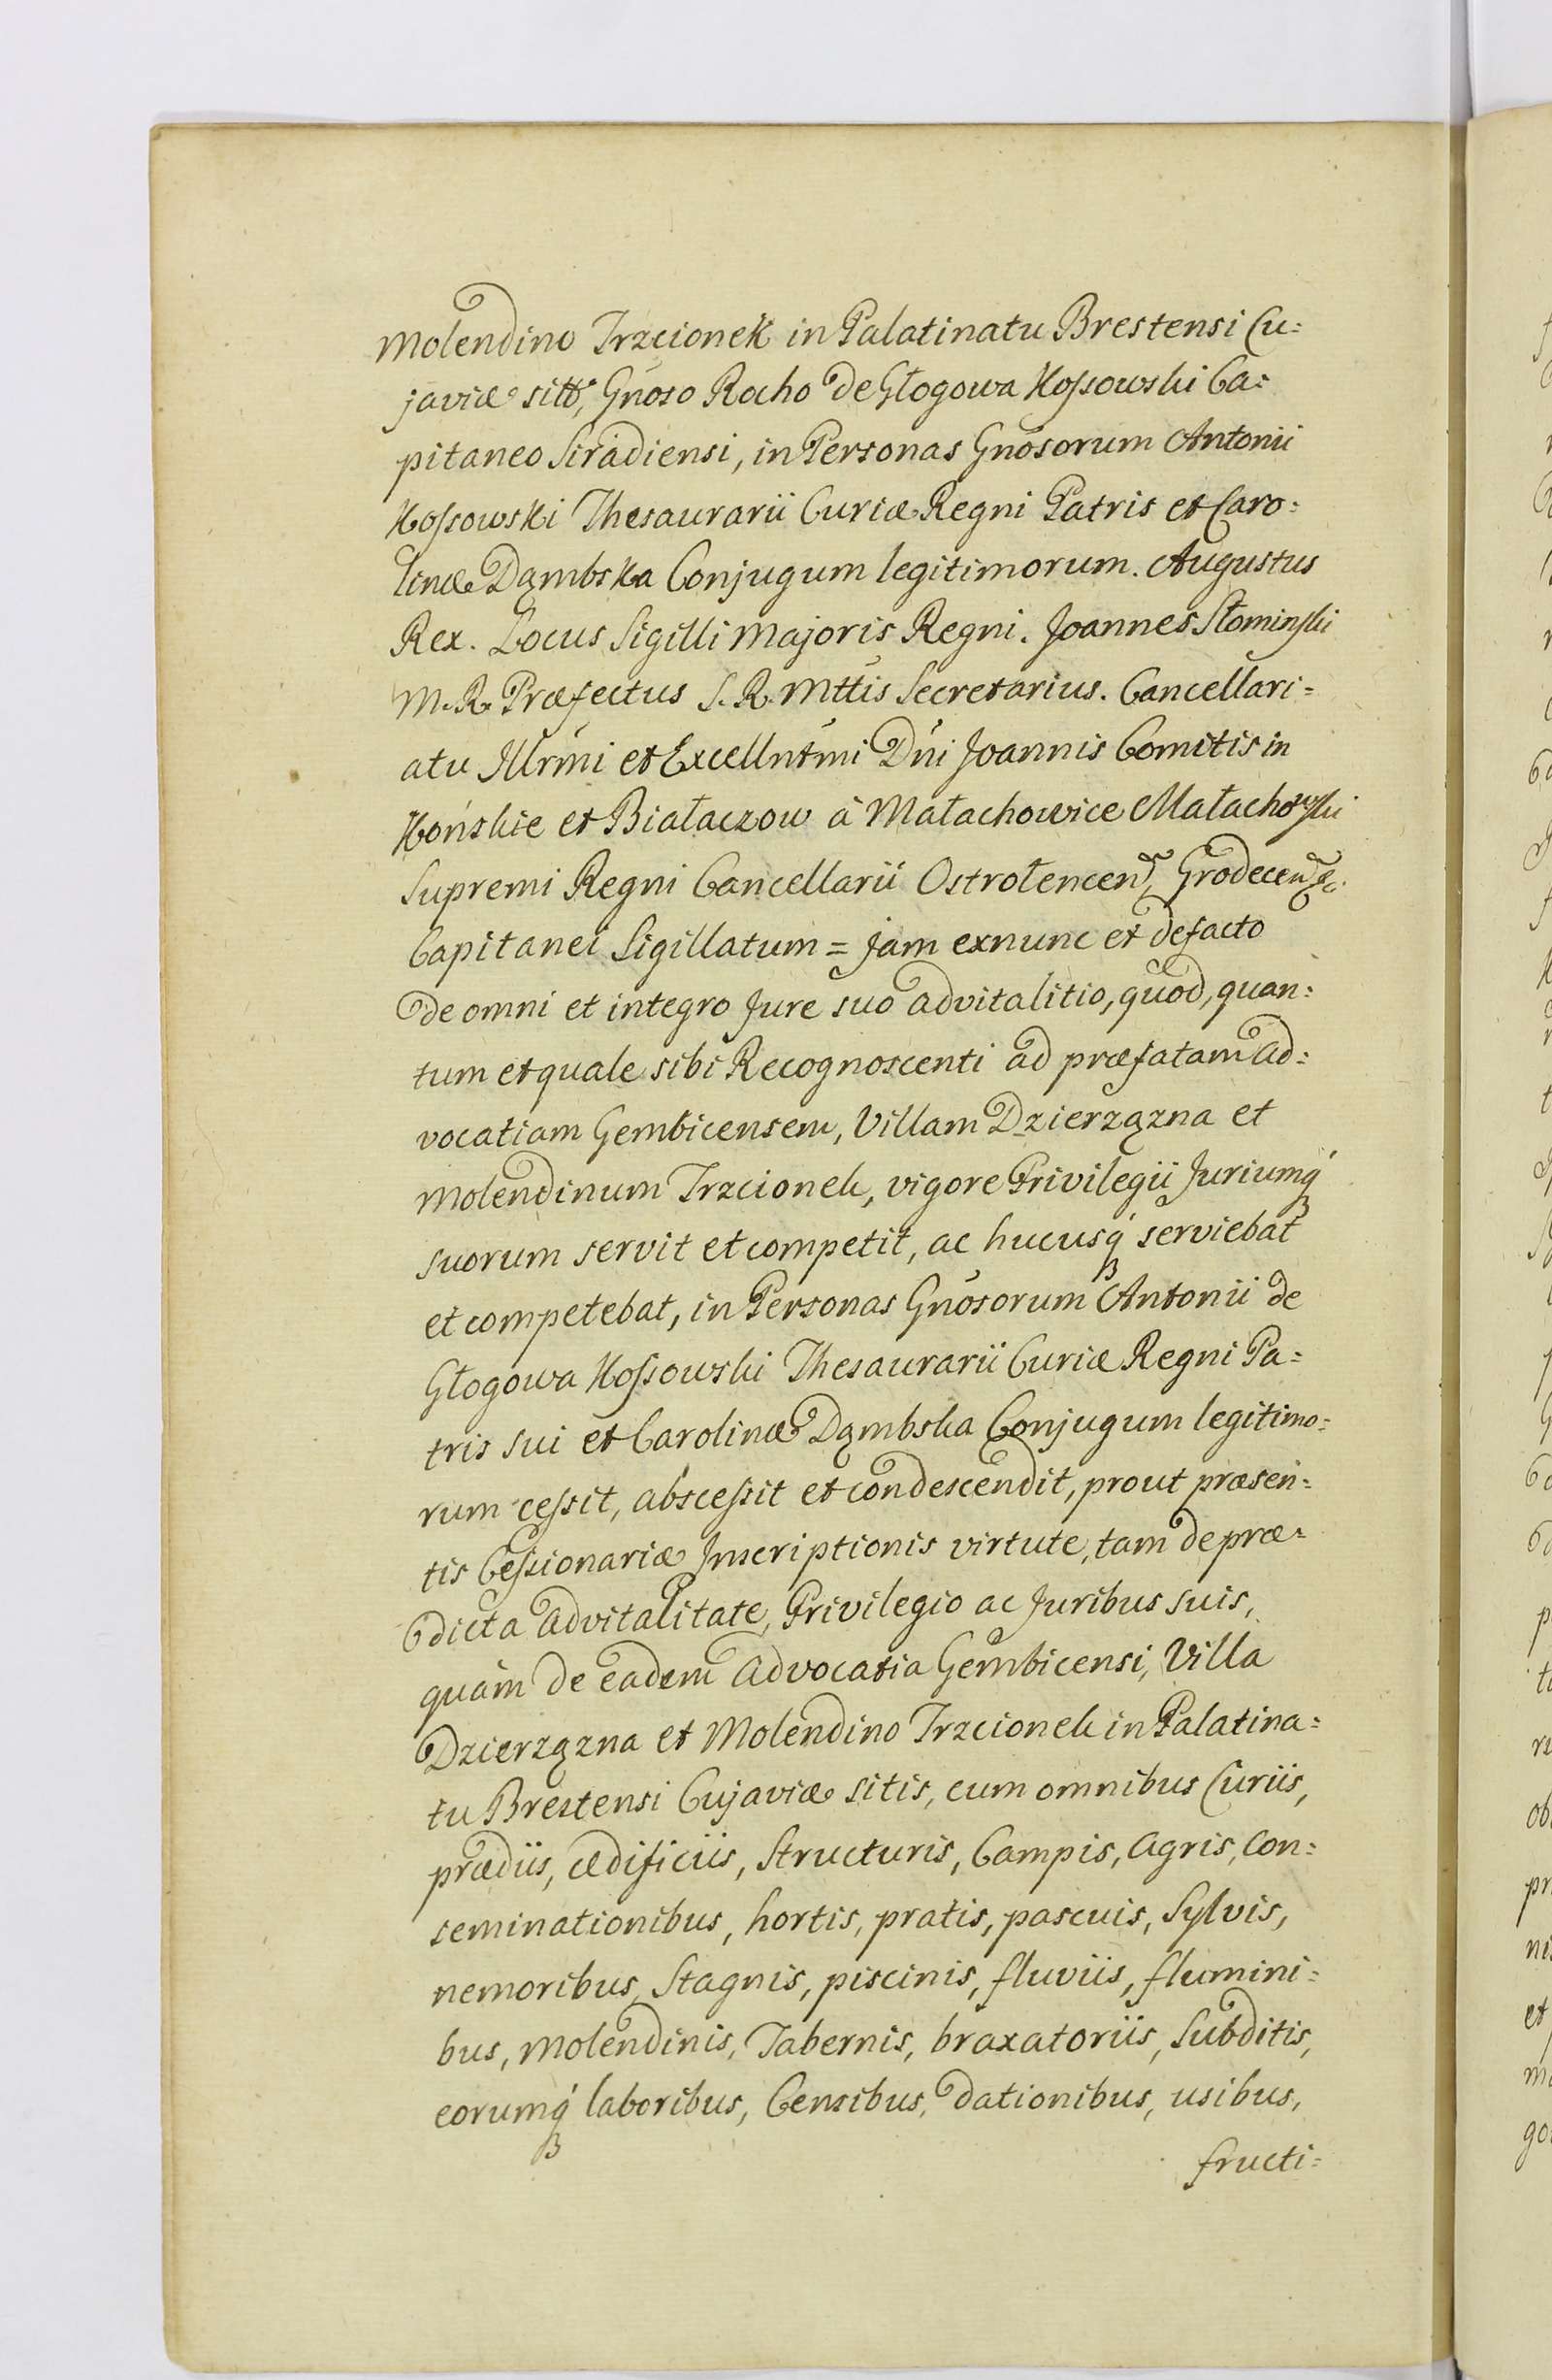 Molendino Trzcionek in Palatinatu Brestensi Cu=
javiæ sitt, Gnoso Rocho de Głogowa Kossowski Ca=
pitaneo Siradiensi, in Personas Gnosorum Antonii
Kossowski Thesaurarii Curiæ Regni Patris et Caro=
linæ Dąmbska Conjugum legitimorum. Augustus
Rex. Locus Sigilli Majoris Regni. Joannes Słominski
M. R. Præfectus S. R. Mttis Secretarius. Cancellari=
atu Illrmi et Excellntmi Dni Joannis Comitis in
Końskie et Białaczow à Małachowice Małachowski
Supremi Regni Cancellarii Ostrołencen, Grodecen &c.
Capitanei Sigillatum = jam exnunc et defacto
de omni et integro Jure suo advitalitio, quod, quan=
tum et quale sibi Recognoscenti ad præfatam ad=
vocatiam Gembicensem, Villam Dzierzązna et
Molendinum Trzcionek, vigore Privilegii Juriumq́
suorum servit et competit, ac hucusq́ serviebat
et competebat, in Personas Gnosorum Antonii de
Głogowa Kossowski Thesaurarii Curiæ Regni Pa=
tris sui et Carolinæ Dąmbska Conjugum legitimo=
rum cessit, abscessit et condescendit, prout præsen=
tis Cessionariæ Inscriptionis virtute, tam de præ=
dicta advitalitate, Privilegio ac Juribus suis,
quàm de eadem advocatia Gembicensi, Villa
Dzierzązna et Molendino Trzcionek in Palatina=
tu Brestensi Cujaviæ sitis, cum omnibus Curiis,
prædiis, ædificiis, Structuris, Campis, Agris, Con=
seminationibus, hortis, pratis, pascuis, Sylvis,
nemoribus, Stagnis, piscinis, fluviis, flumini=
bus, Molendinis, Tabernis, braxatoriis, Subditis,
eorumq́ laboribus, Censibus, dationibus, usibus,
fructi=